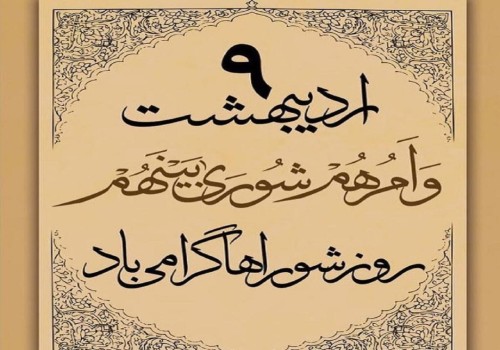 ۹
اردیبهشت
وَاَمرُهُم شُورَی بَینَهُم
روز شوراها گرامی باد